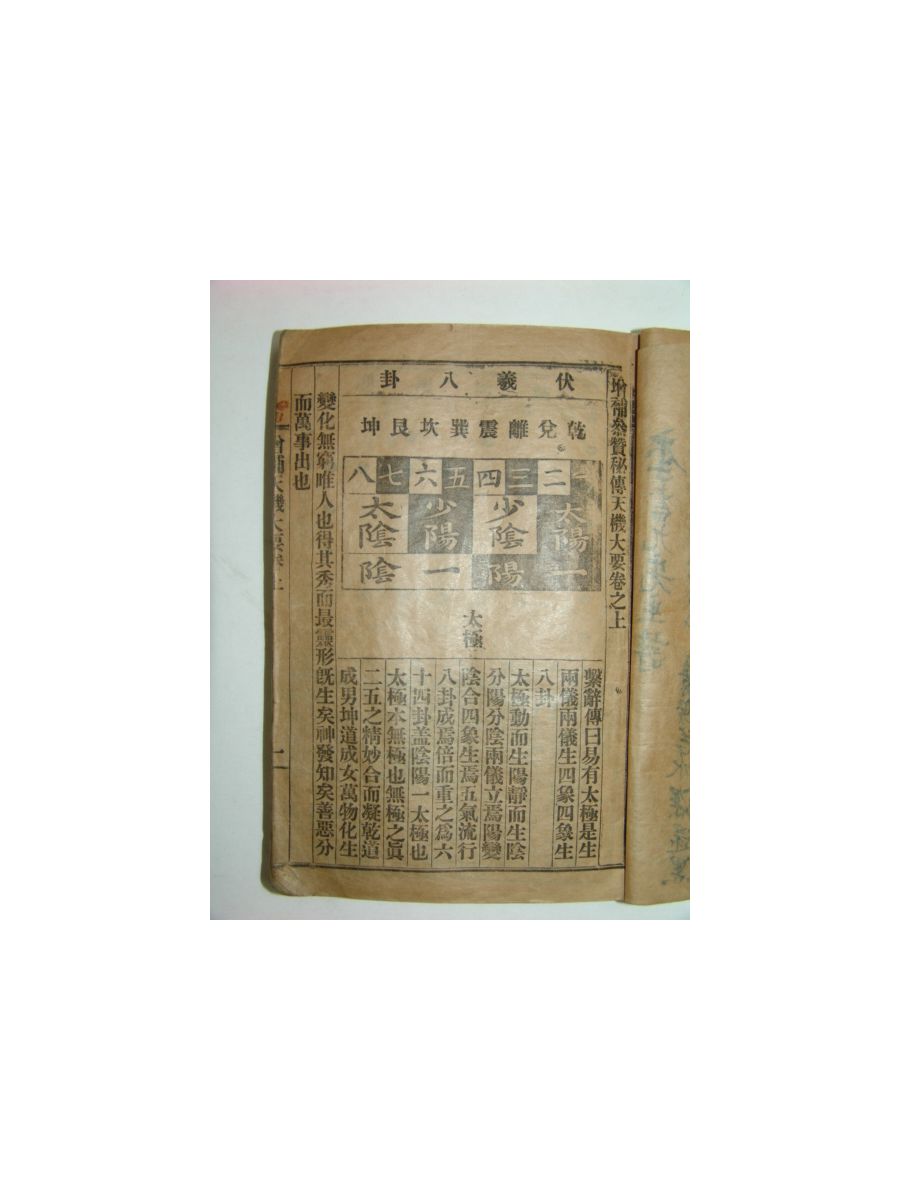 增補參贊秘傳天機大要卷之上
伏羲八卦
乾兌離震巽坎艮坤
一二三四五六七八
太陽 少陰 少陽 太陰
一 陽 一 陰
太極
繫辭傳曰易有太極是生
兩儀兩儀生四象四象生
八卦
太極動而生陽靜而生陰
分陽分陰兩儀立焉陽變
陰合四象生焉五氣流行
八卦成焉倍而重之爲六
十四卦盖陰陽一太極也
太極本無極也無極之眞
二五之精妙合而凝乾道
成男坤道成女萬物化生
變化無窮唯人也得其秀而最靈形旣生矣神發知矣善惡分
而萬事出也
增補天機大要卷上
一